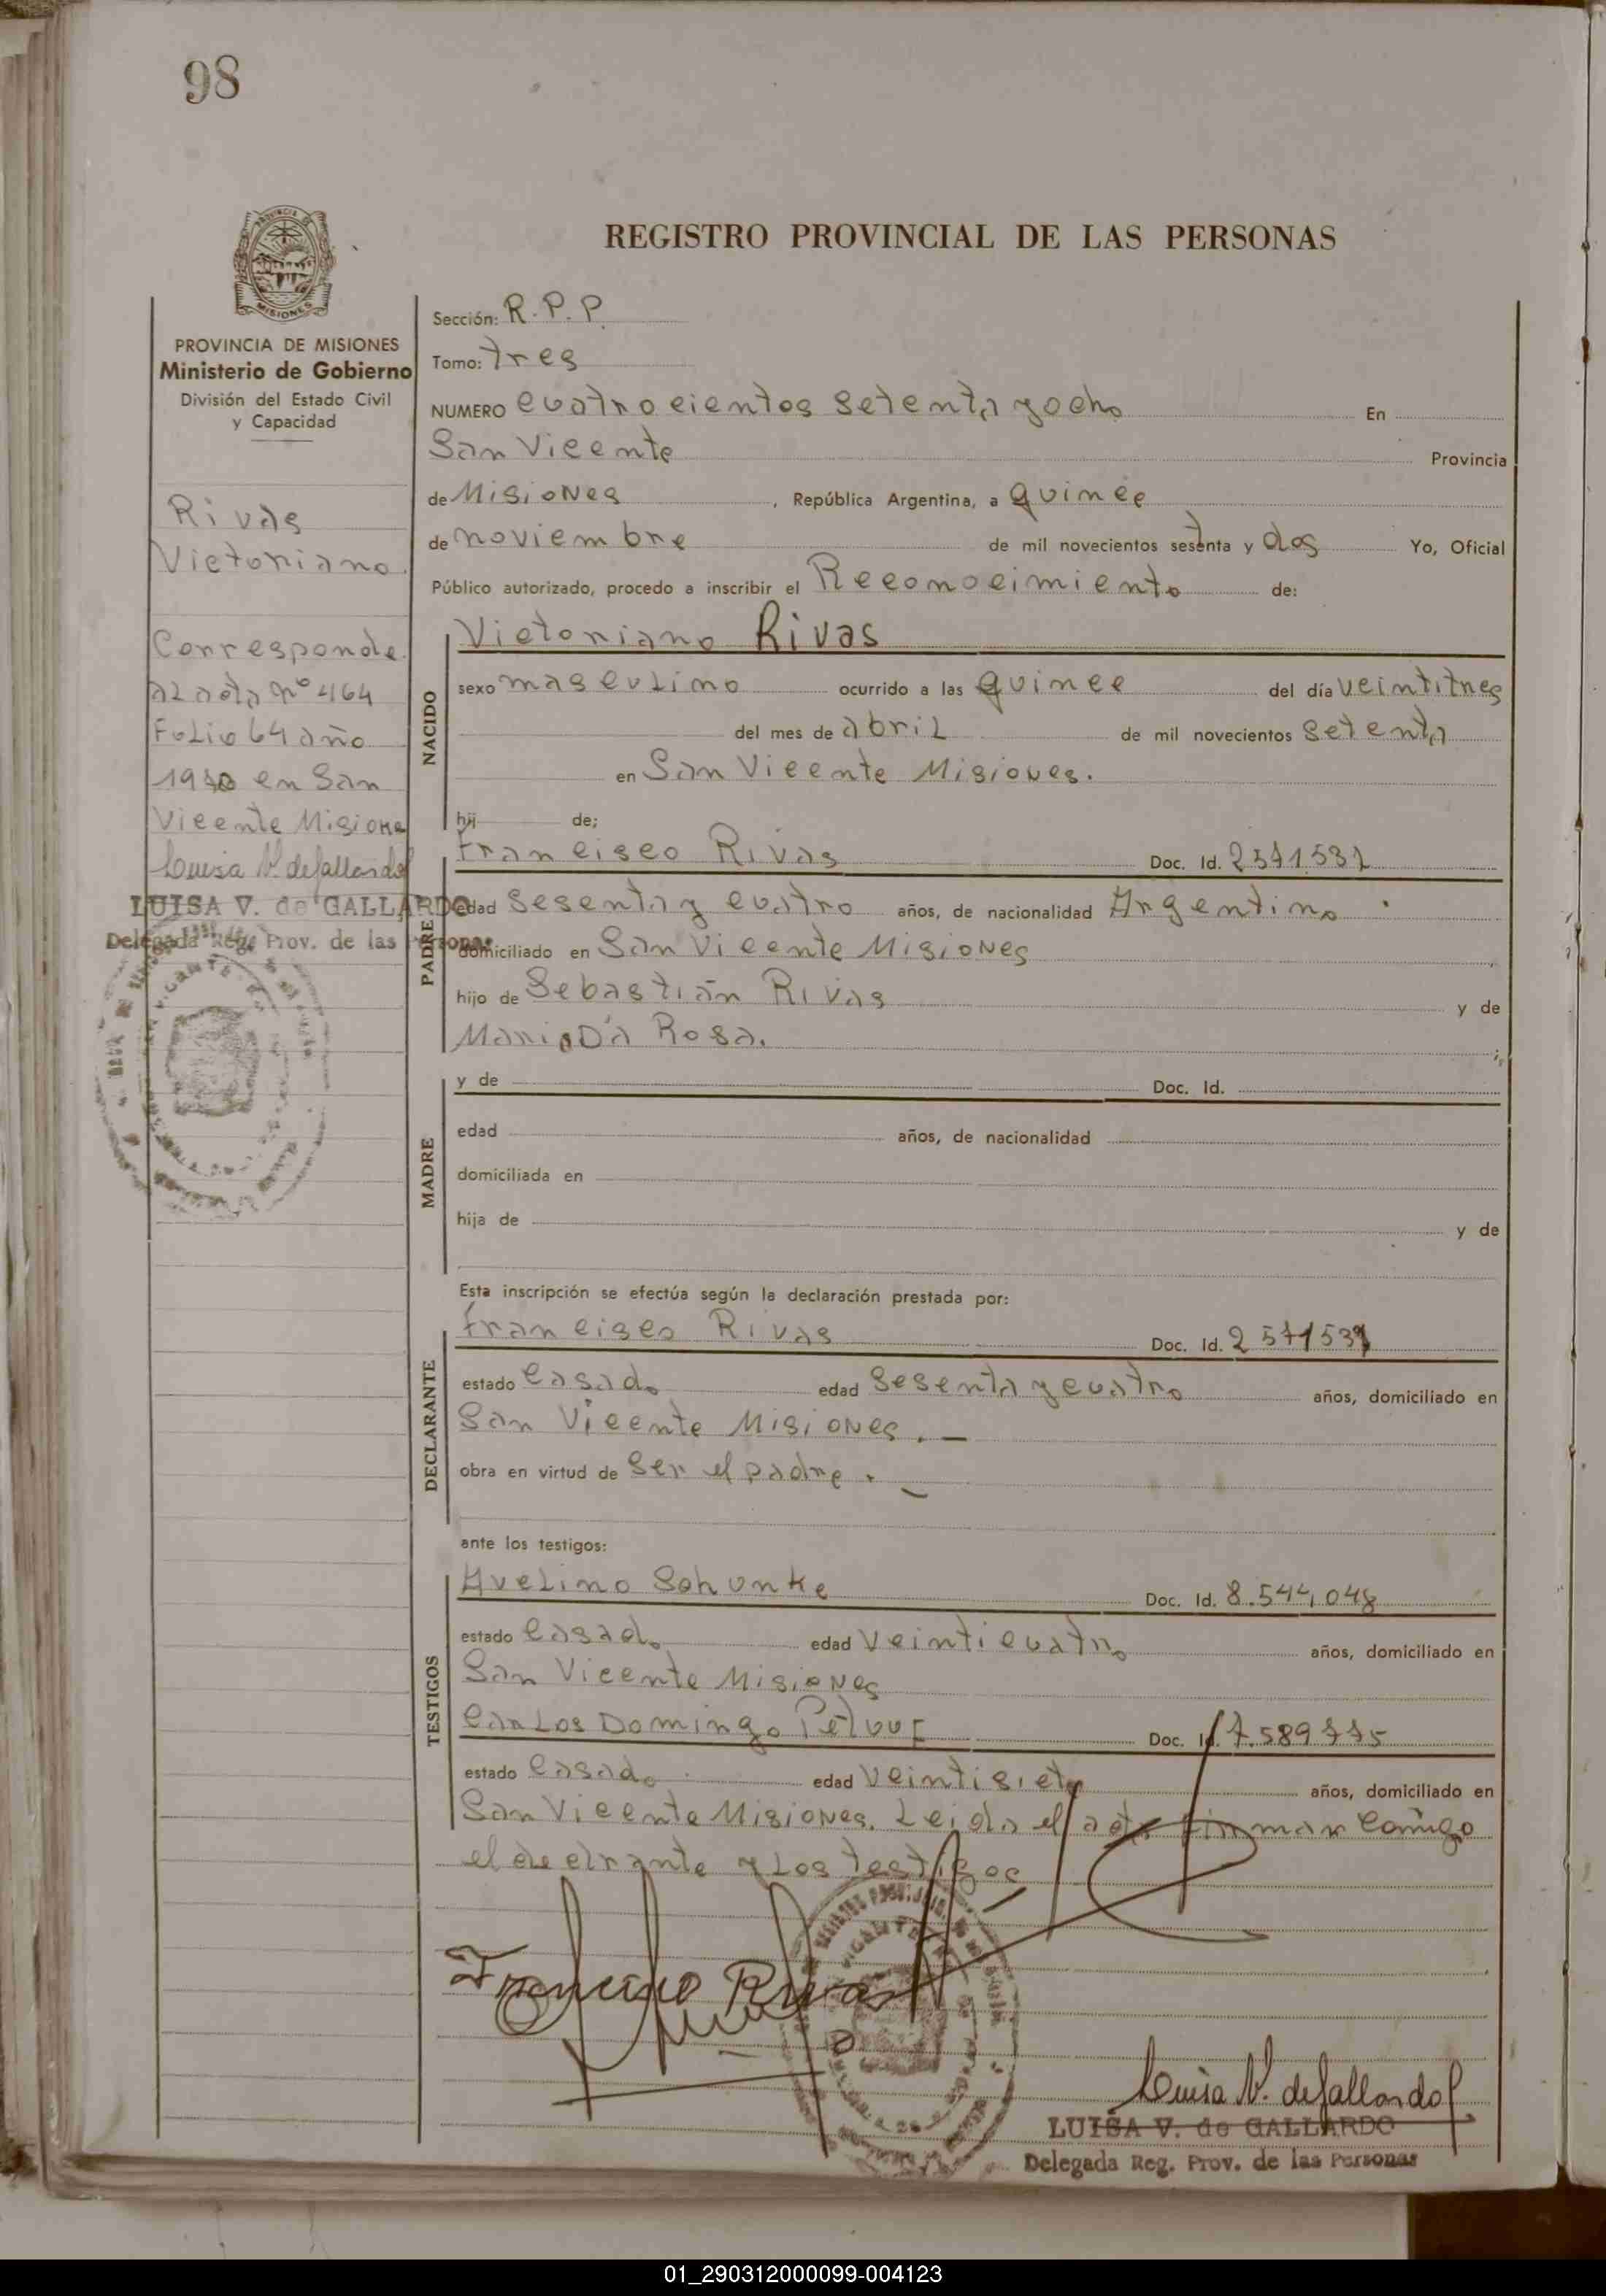 98
REGISTRO PROVINCIAL DE LAS PERSONAS
MISIONES
PROVINCIA DE MISIONES
Ministerio de Gobierno
División del Estado Civil
y Capacidad
Rivas
Victoriano
Corresponde
al acta nº 464
Folio 64 año
en San
Vicente Misione
Luisa V. de Gallardo
LUISA V. de GALLARDO
Delegada Reg. Prov. de las Personas
Sección: R.P.P.
Tomo: tres
NUMERO cuatrocientos setenta y ocho En
San Vicente Provincia
de Misiones , República Argentina, a quince
de noviembre de mil novecientos setenta y dos Yo, Oficial
Público autorizado, procedo a inscribir el Reconocimiento de:
NACIDO
Victoriano Rivas
sexo masculino ocurrido a las quince del día veintitres
del mes de abril de mil novecientos setenta
en San Vicente Misiones.
hij de;
PADRE
Francisco Rivas Doc. Id. 2571531
edad sesenta y cuatro años, de nacionalidad Argentino
domiciliado en San Vicente Misiones
hijo de Sebastián Rivas y de
Maria Da Rosa.
MADRE
y de Doc. Id.
edad años, de nacionalidad
domiciliada en
hija de y de
Esta inscripción se efectúa según la declaración prestada por:
DECLARANTE
Francisco Rivas Doc. Id. 2571531
estado casado edad sesenta y cuatro años, domiciliado en
San Vicente Misiones.—
obra en virtud de ser el padre.—
ante los testigos:
TESTIGOS
Avelino Schunke Doc. Id. 8.544.048
estado casado edad veinticuatro años, domiciliado en
San Vicente Misiones
Carlos Domingo Doc. Id. 7.589775
estado casado edad veintisiete años, domiciliado en
San Vicente Misiones. Leida el acta firman conmigo
el y los testigos
Francisco Rivas
Luisa V. de Gallardo
LUISA V. de GALLARDO
Delegada Reg. Prov. de las Personas
01_290312000099-004123